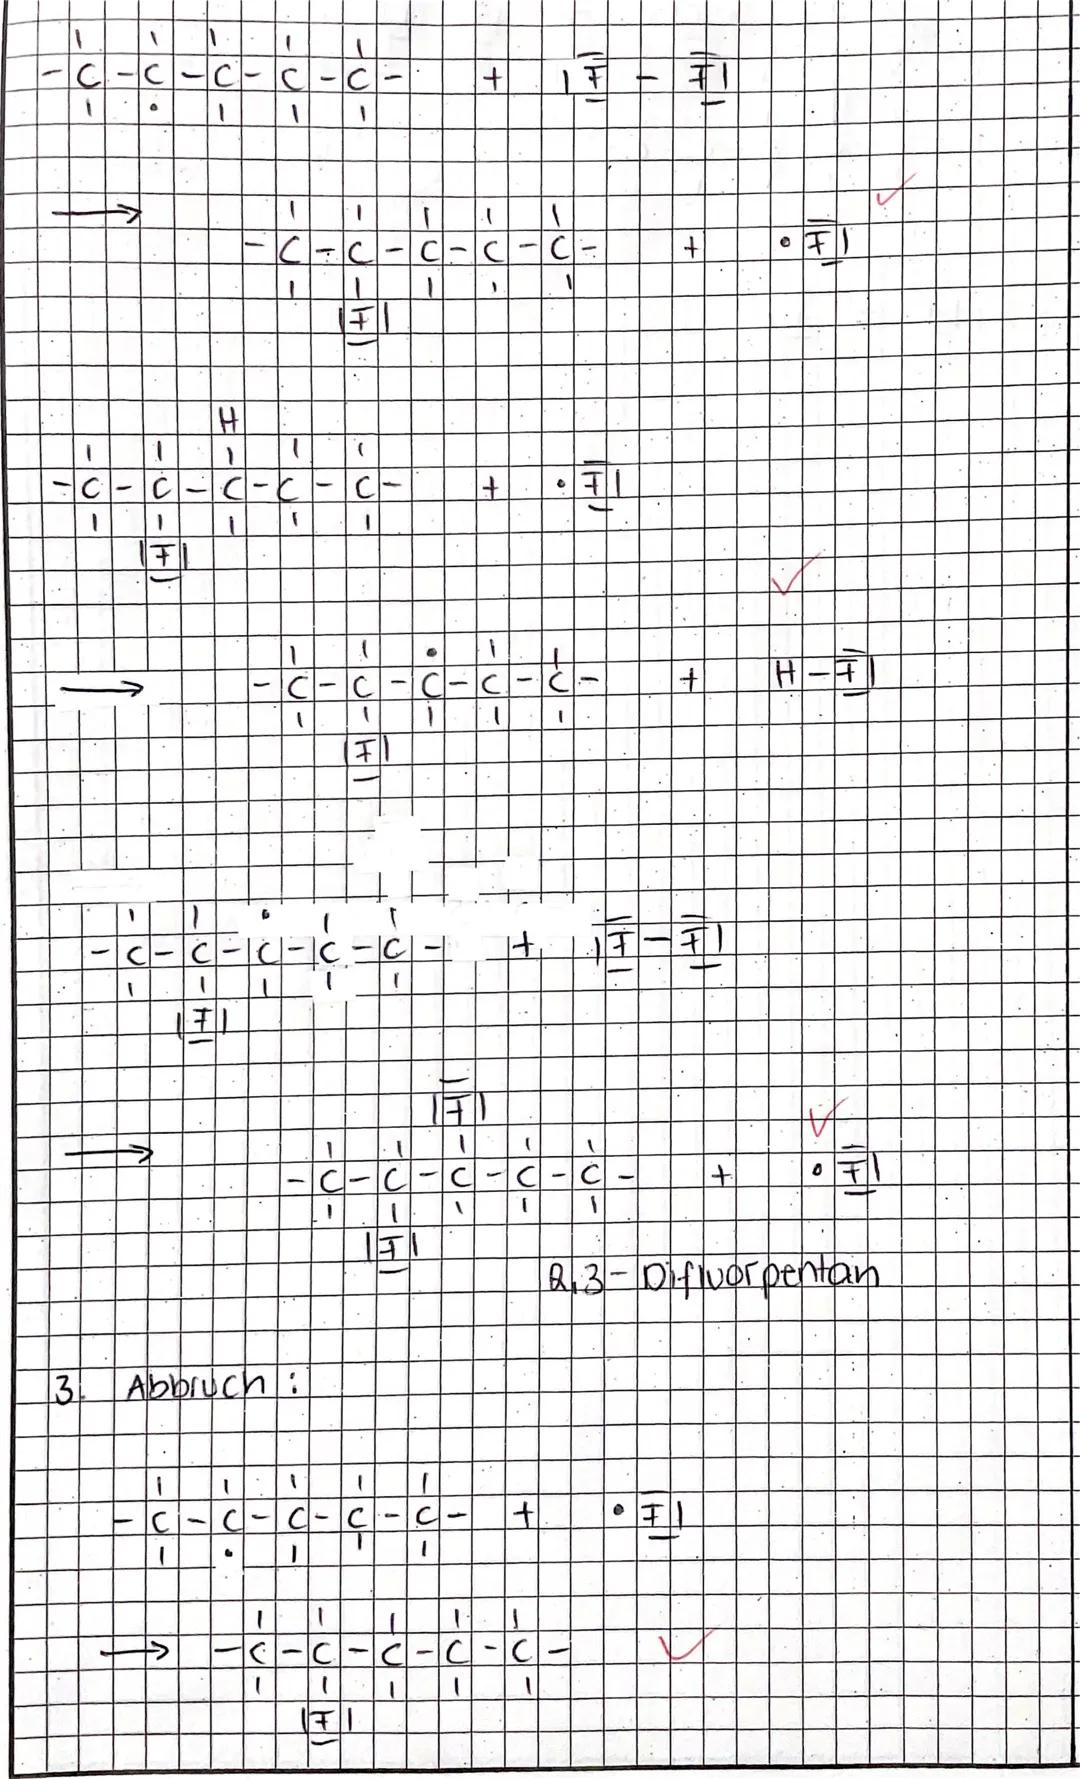 - C - C - C - C - C - + |F - F|
→ - C - C - C - C - C - + • F|
|F|
H
- C - C - C - C - C - + • F|
|F|
→ - C - C - C - C - C - + H - F|
|F|
- C - C - C - C - C - + |F - F|
|F|
|F|
→ - C - C - C - C - C - + • F|
|F|
2,3 - Difluorpentan
3. Abbruch :
- C - C - C - C - C - + • F|
→ - C - C - C - C - C -
|F|